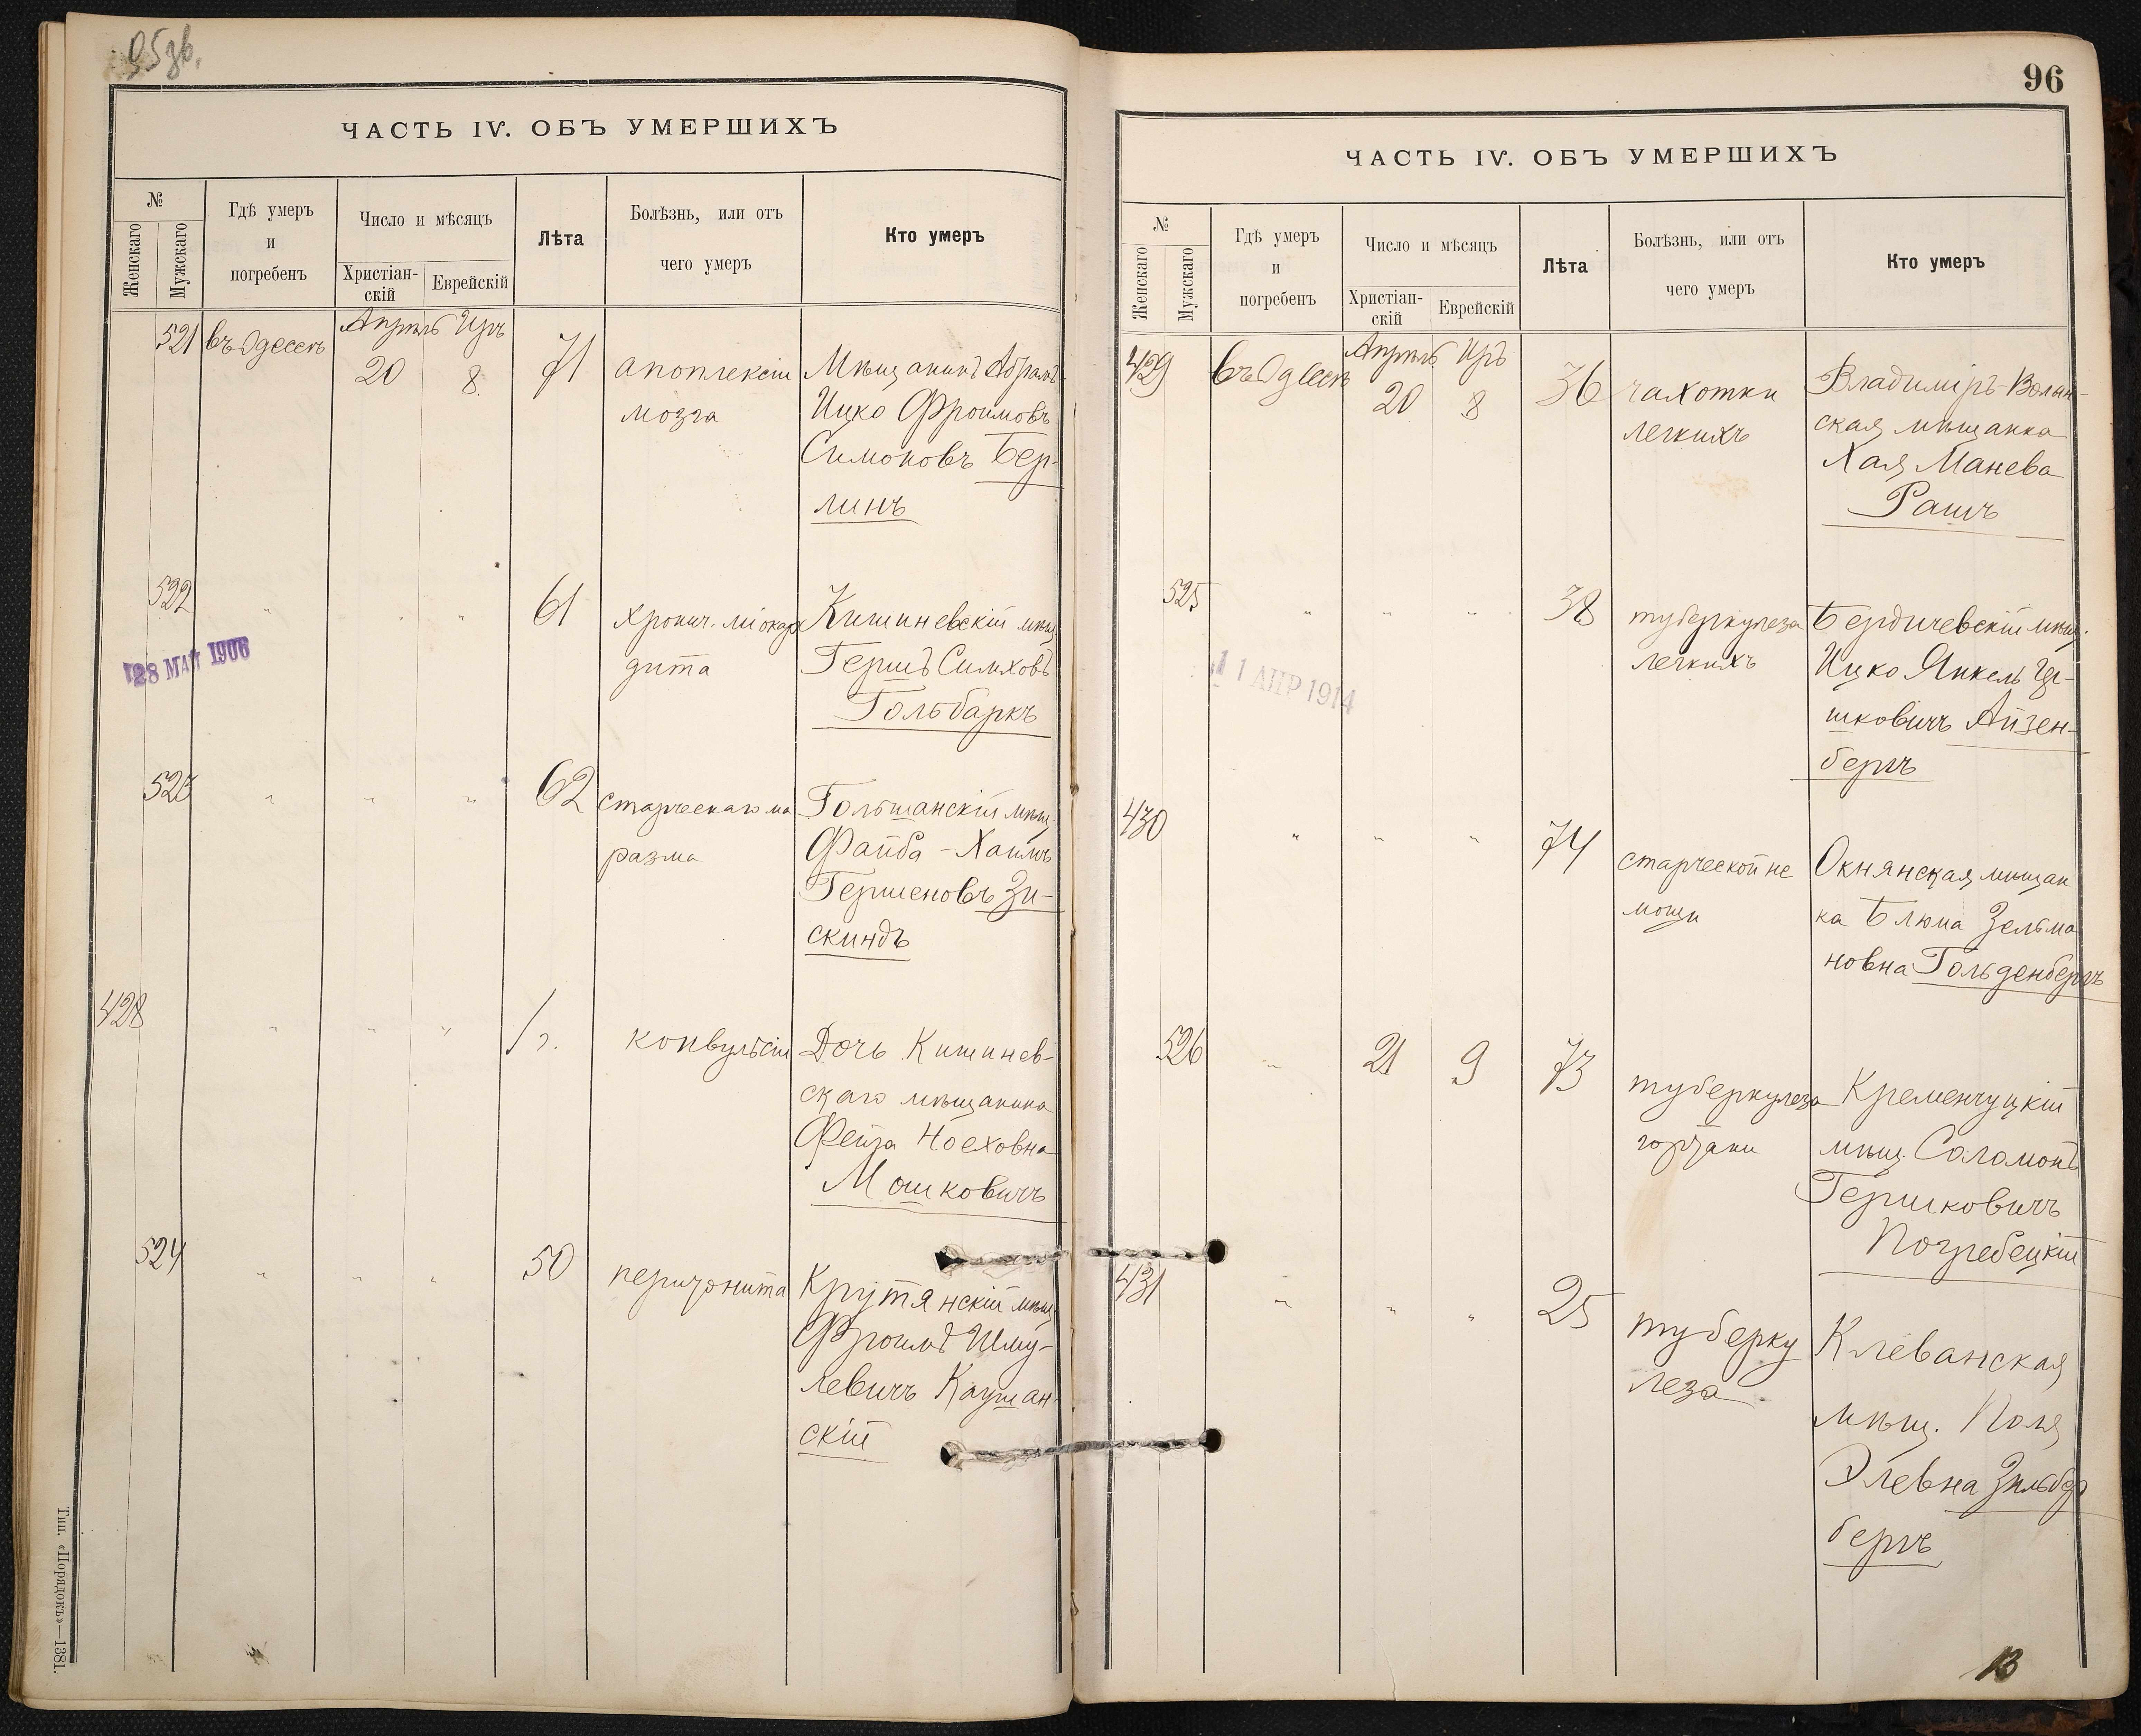 95 зв.
ЧАСТЬ IV. ОБЪ УМЕРШИХЪ
№
Женскаго
Мужскаго
Гдѣ умеръ
и
погребенъ
Число и мѣсяцъ
Христіан-
скій
Еврейскій
Лѣта
Болѣзнь, или отъ
чего умеръ
Кто умеръ
521 въ Одессѣ Апрѣль Иръ
20 8 71 апоплексіи Мѣщанинъ Абрамъ-
мозга Ицко Фроимовъ
Симоновъ Бер-
линъ
522 " " " 61 хронич. міокар Кишиневскій мѣщ.
дита Гершъ Симховъ
Гольбаркъ
28 МАЙ 1906
523 " " " 62 старческаго ма Гольшанскій мѣщ.
разма Файба-Хаимъ
Гершеновъ Зи-
скиндъ
428 " " " 1 г. конвульсіи Дочь Кишинев-
скаго мѣщанина
Фейга Ноеховна
Мошковичъ
524 " " " 50 перитонита Крутянскій мѣщ.
Фроимъ Шму-
левичъ Каушан-
скій
Тип. «Порядокъ»—1381.
96
ЧАСТЬ IV. ОБЪ УМЕРШИХЪ
№
Женскаго
Мужскаго
Гдѣ умеръ
и
погребенъ
Число и мѣсяцъ
Христіан-
скій
Еврейскій
Лѣта
Болѣзнь, или отъ
чего умеръ
Кто умеръ
429 въ Одессѣ Апрѣль Иръ
20 8 36 чахотки Владиміръ-Волын-
легкихъ ская мѣщанка
Хая Манева
Рашъ
525 " " " 38 туберкулеза Бердичевскій мѣщ.
легкихъ Ицко Янкель Гер-
шковичъ Айзен-
бергъ
11 АПР 1914
430 " " " 74 старческой не Окнянская мѣщан
мощи ка Блюма Зельма
новна Гольденбергъ
526 " 21 9 73 туберкулеза Кременчуцкій
гортани мѣщ. Соломонъ
Гершковичъ
Погребецкій
431 " " " 25 туберку Клеванская
леза мѣщ. Поля
Элевна Зильбер
бергъ
13